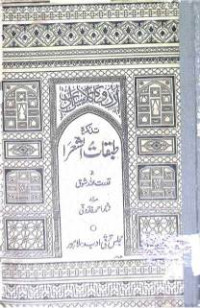 تذکرہ
طبقات الشعرا
قدرت اللہ شوق
نثار احمد فاروقی
مجلس ترقی ادب ○ لاہور